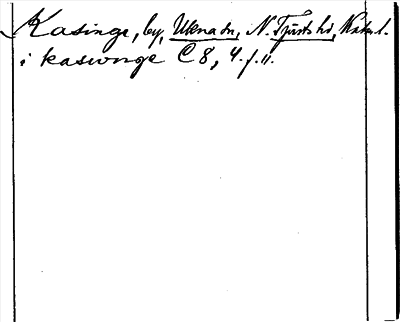 Kasinge, by, Ukna sn, N. Tjusts hd, Kalm. l.
i kaswnge C 8, 4. f. 11.